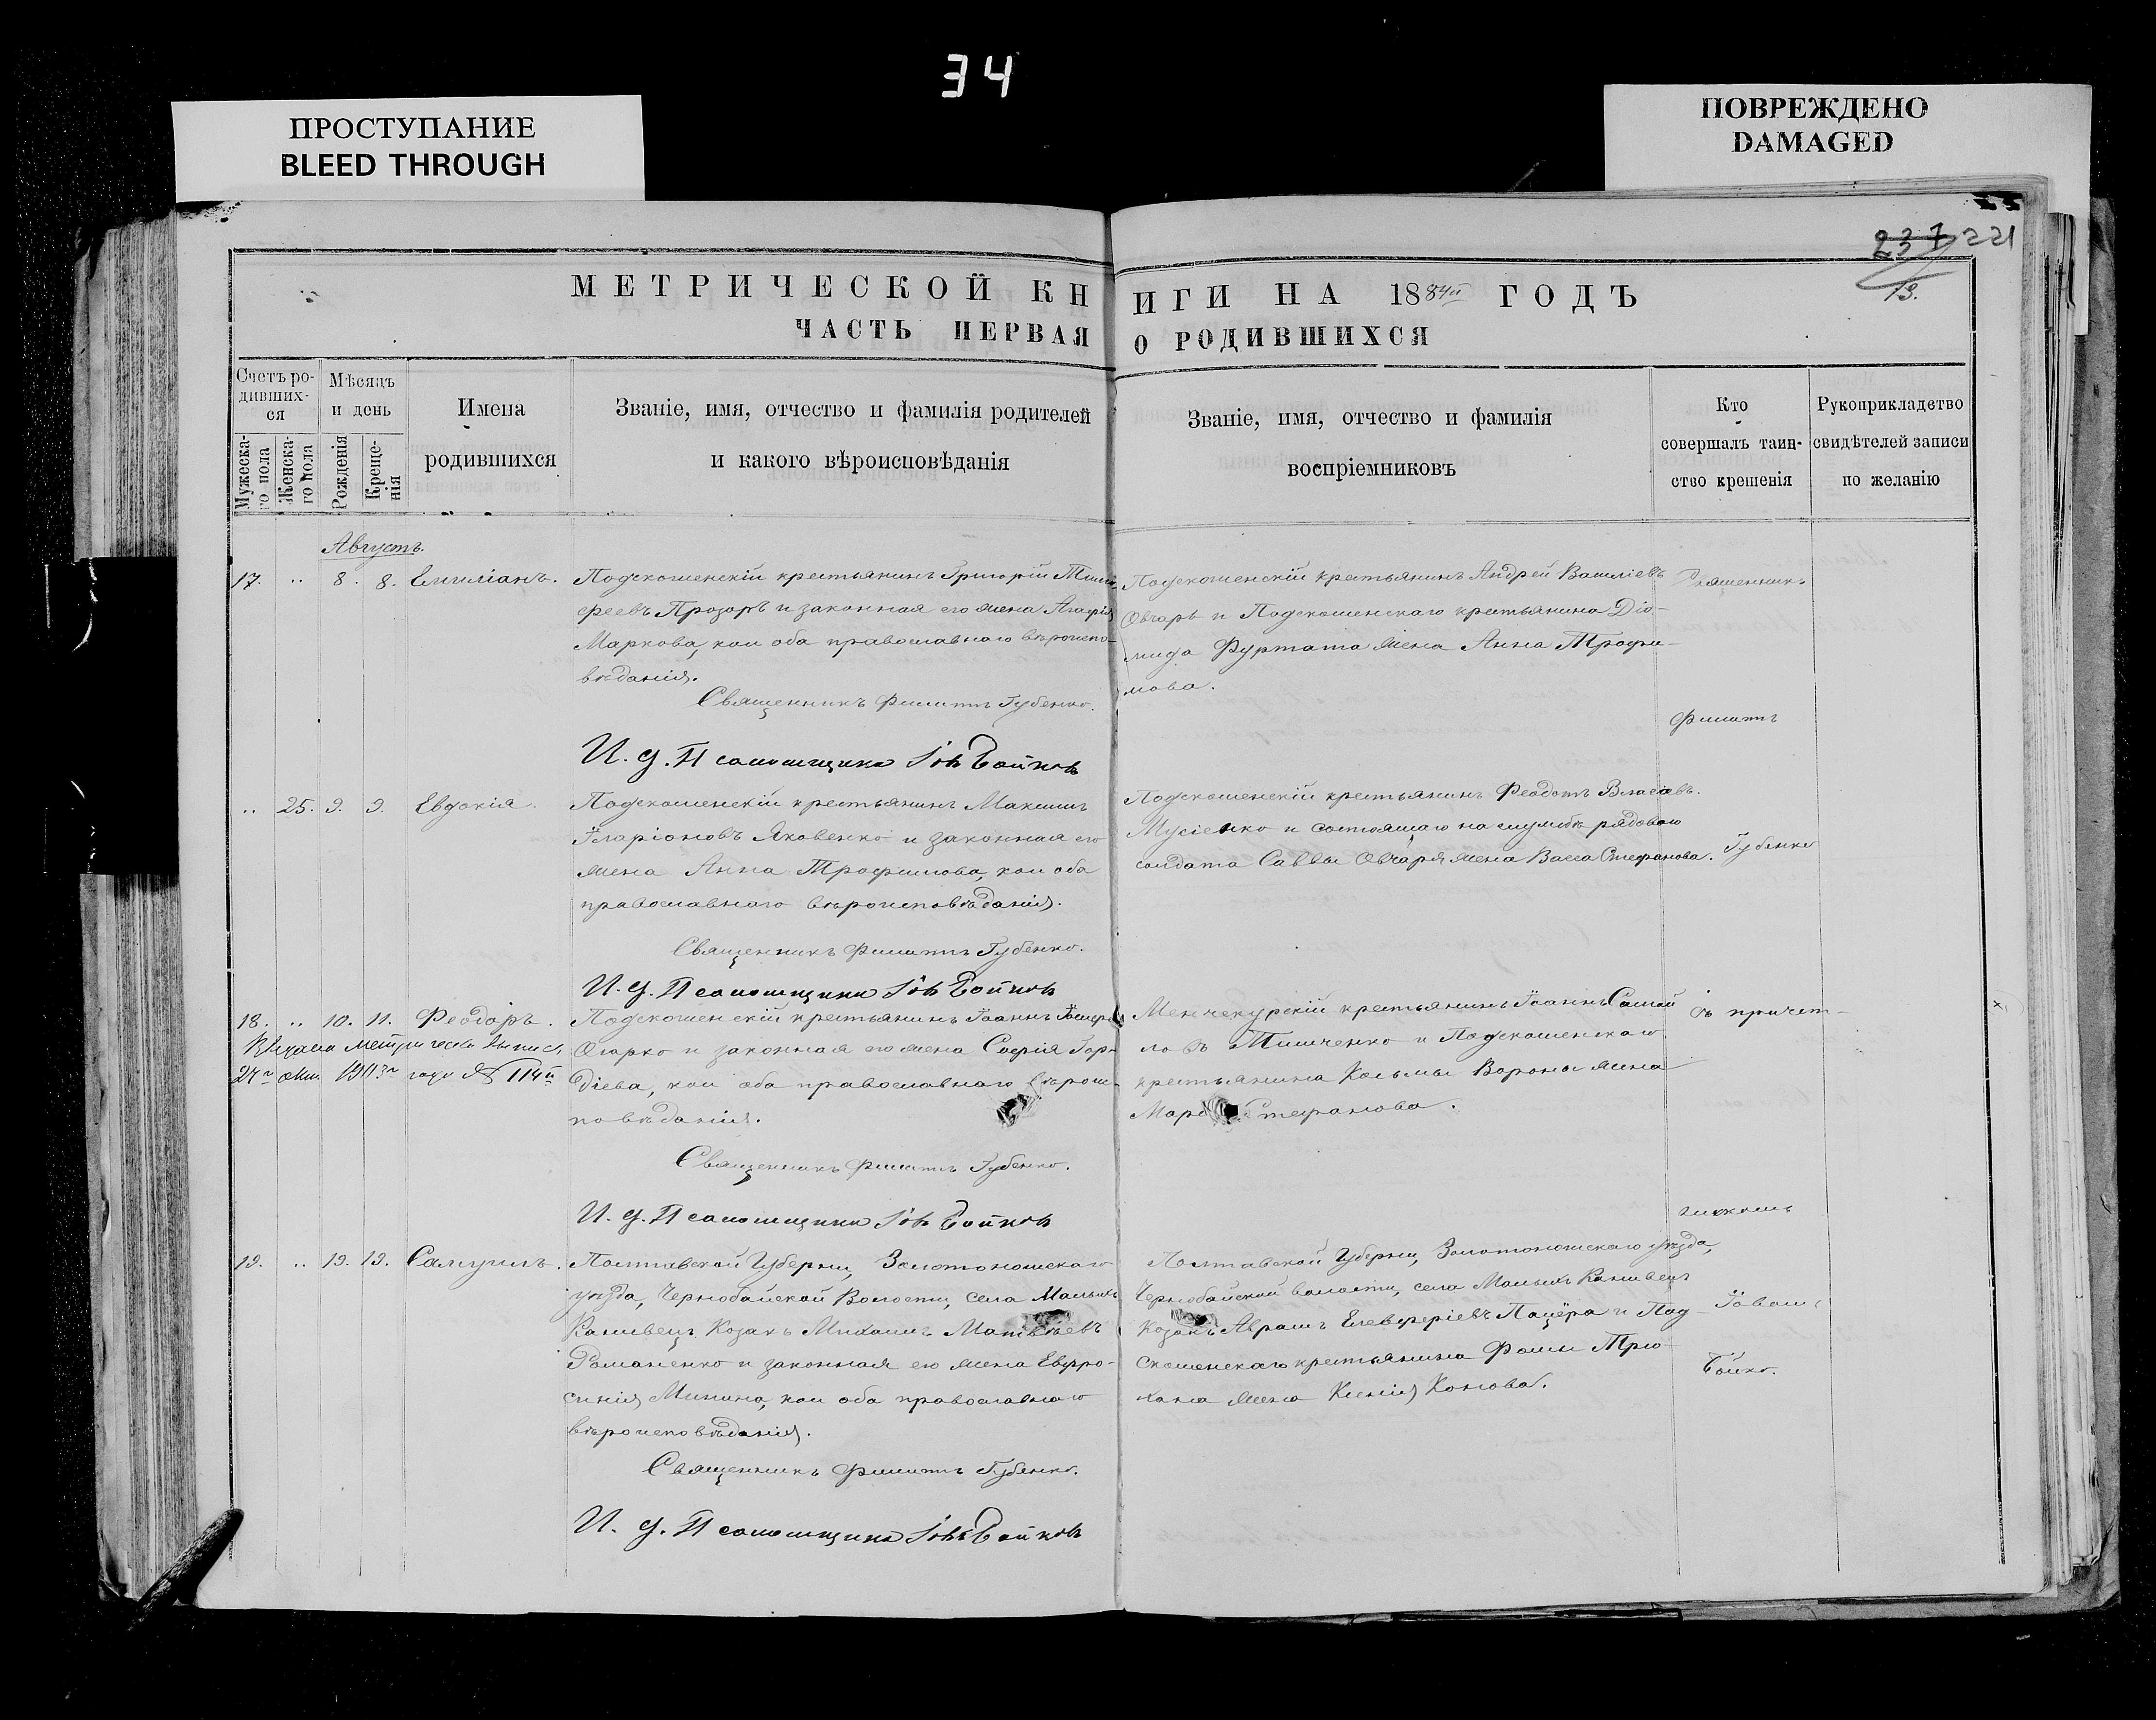 34
ПРОСТУПАНИЕ
BLEED THROUGH
ПОВРЕЖДЕНО
DAMAGED
237 221
19.
МЕТРИЧЕСКОЙ КНИГИ НА 1884й ГОДЪ
ЧАСТЬ ПЕРВАЯ О РОДИВШИХСЯ
Счетъ ро-
дивших-
ся
Мужеска-
го пола
Женска-
го пола
Мѣсяцъ
и день
Рожденія
Креще-
нія
Имена
родившихся
Званіе, имя, отчество и фамилія родителей
и какого вѣроисповѣданія
Званіе, имя, отчество и фамилія
воспріемниковъ
Кто
совершалъ таин-
ство крещенія
Рукоприкладство
свидѣтелей записи
по желанію
Августъ.
17. .. 8. 8. Емиліанъ.
Подскошенскій крестьянинъ Григорій Тимо
феевъ Прозоръ и законная его жена Агафія
Маркова, кои оба православнаго вѣроиспо-
вѣданія.
Священникъ Филиппъ Губенко.
И. д. Псаломщика Іовъ Бойковъ
Подскошенскій крестьянинъ Андрей Василіевъ
Овчаръ и Подскошенскаго крестьянина Діо-
мида Фуртата жена Анна Трофи-
мова.
Священникъ
Филиппъ
.. 25. 9. 9. Евдокія.
Подскошенскій крестьянинъ Максимъ
Иларіоновъ Яковенко и законная его
жена Анна Трофимова, кои оба
православнаго вѣроисповѣданія.
Священникъ Филиппъ Губенко.
И. д. Псаломщика Іовъ Бойковъ
Подскошенскій крестьянинъ Феодотъ Власіевъ.
Мусіенко и состоящаго на службѣ рядоваго
солдата Саввы Овчаря жена Васса Стефанова.
Губенко
18. .. 10. 11. Феодоръ.
Выдана метрическая выпись
24го окт. 1903го года № 114й
Подскошенскій крестьянинъ Іоаннъ
Огарко и законная его жена Софія Гор-
діева, кои оба православнаго вѣроис-
повѣданія.
Священникъ Филиппъ Губенко.
И. д. Псаломщика Іовъ Бойковъ
Менчекурскій крестьянинъ Іоаннъ Самой
ловъ Тимченко и Подскошенскаго
крестьянина Косьмы Вороны жена
Стефанова.
съ причет-
никомъ
19. .. 19. 19. Самуилъ.
Полтавской Губерніи, Золотоношскаго
уѣзда, Чернобайской Волости, села Малыхъ
Каневецъ Козакъ Михаилъ Матвѣевъ
Романенко и законная его жена Евфро-
синія Минина, кои оба православнаго
вѣроисповѣданія.
Священникъ Филиппъ Губенко.
И. д. Псаломщика Іовъ Бойковъ
Полтавской Губерніи, Золотоношскаго уѣзда,
Чернобайской волости, села Малыхъ Каневецъ
Козакъ Аврамъ Елевферіевъ Пацёра и Под-
скошенскаго крестьянина Фомы Трю-
хана жена Ксенія Конова.
Іовомъ
Бойко.